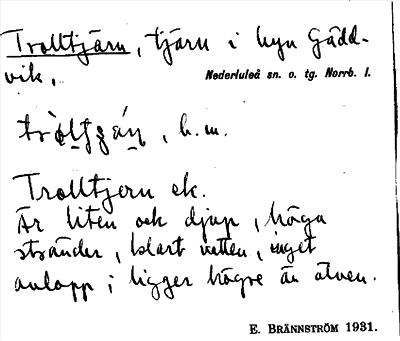 Trolltjärn, tjärn i byn Gädd-
vik,
Nederluleå sn. o. tg. Norrb. l.
, b. m.
Trolltjern ek.
Är liten och djup, höga
stränder, klart vatten, inget
avlopp; ligger högre än älven.
E. BRÄNNSTRÖM 1931.